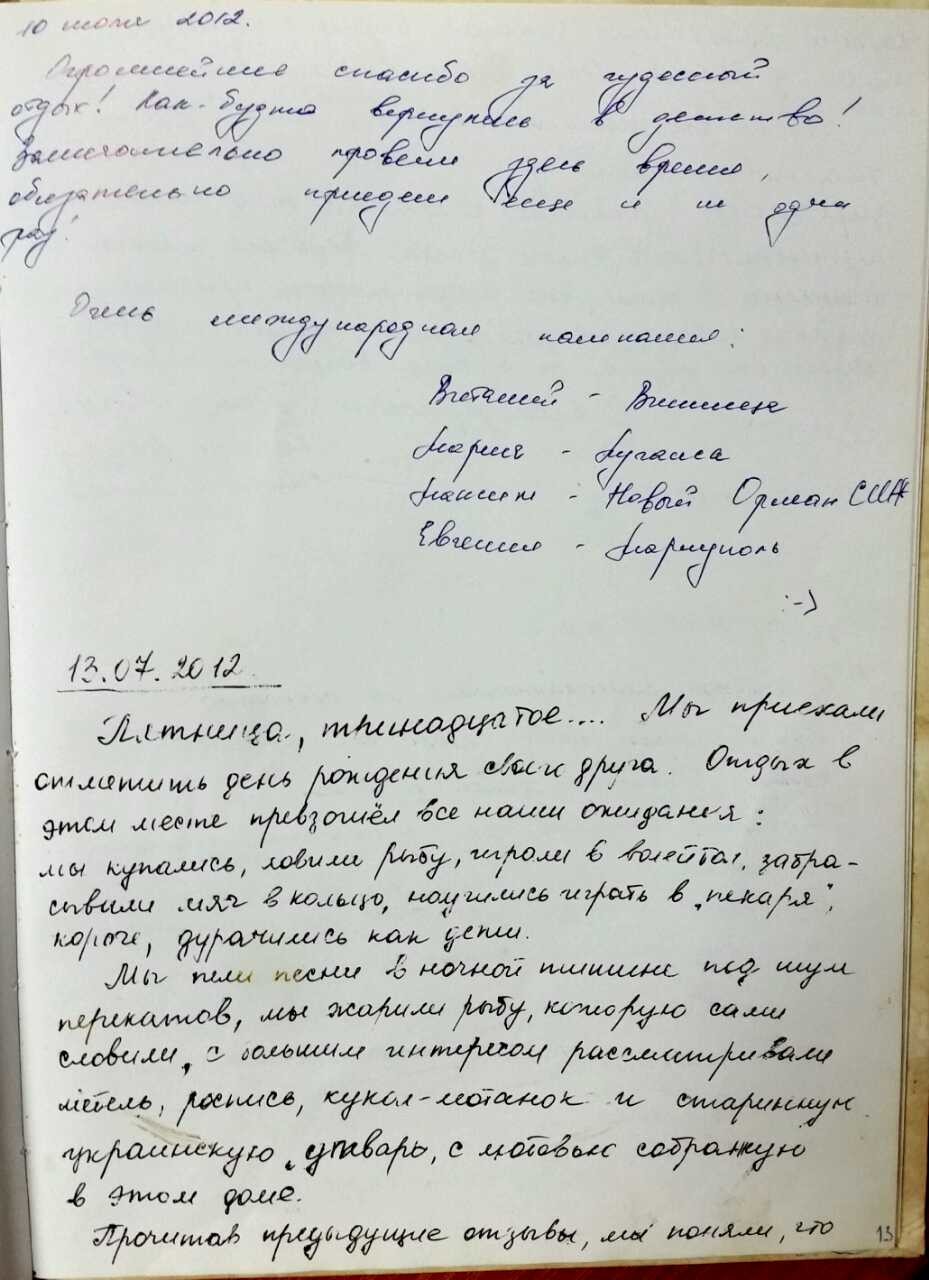 10 июля 2012.
Огромнейшее спасибо за чудесный
отдых! Как-будто вернулись в детство!
Замечательно провели здесь время,
обязательно приедем еще и не один
раз!
Очень международная компания:
Виталий - Винница
Марина - Луганск
Максим - Новый Орлеан США
Евгения - Мариуполь
:-)
13.07.2012
Пятница, тринадцатое.... Мы приехали
отметить день рождения своего друга. Отдых в
этом месте превзошёл все наши ожидания:
мы купались, ловили рыбу, играли в волейбол, забра-
сывали мяч в кольцо, научились играть в "пекаря",
короче, дурачились как дети.
Мы пели песни в ночной тишине под шум
перекатов, мы жарили рыбу, которую сами
словили, с большим интересом рассматривали
мебель, роспись, кукол-мотанок и старинную
украинскую утварь, с любовью собранную
в этом доме.
Прочитав предыдущие отзывы, мы поняли, что
13